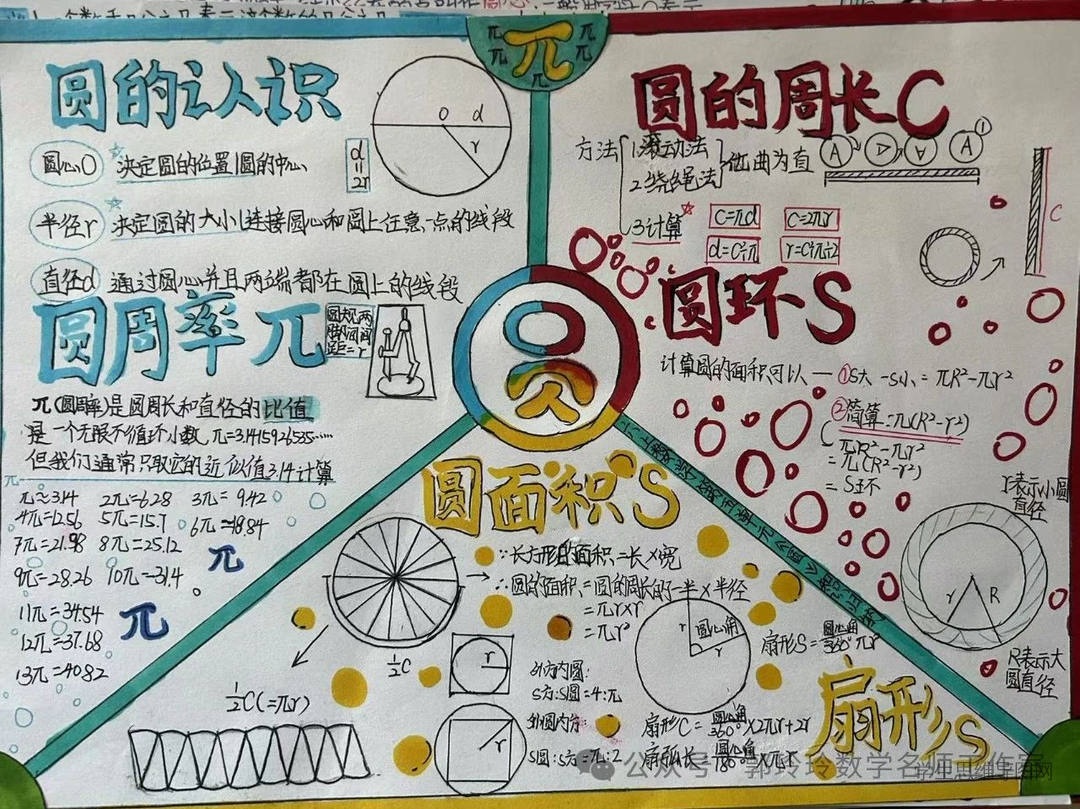 π
圆的认识
圆心O 决定圆的位置|圆的中心
半径r 决定圆的大小|连接圆心和圆上任意一点的线段
直径d 通过圆心并且两端都在圆上的线段
O d
r
d=2r
圆周率π
圆规两脚间间距=r
π(圆周率)是圆周长和直径的比值
是一个无限不循环小数,π=3.1415926535……
但我们通常只取它的近似值3.14计算
π≈3.14 2π=6.28 3π=9.42
4π=12.56 5π=15.7 6π=18.84
7π=21.98 8π=25.12
9π=28.26 10π=31.4
11π=34.54
12π=37.68
13π=40.82
π
π
圆的周长C
方法
1.滚动法
2.绕绳法
化曲为直
3计算
C=πd C=2πr
d=C÷π r=C÷π÷2
A A A A
C
圆环S
计算圆的面积可以—①S大-S小=πR²-πr²
②简算=π(R²-r²)
πR²-πr²
=π(R²-r²)
=S环
r表示小圆直径
r R
R表示大圆直径
圆
圆面积S
∵长方形的面积=长×宽
∴圆的面积=圆的周长的一半×半径
=πr×r
=πr²
½C
½C(=πr)
r
外方内圆:
S方:S圆=4:π
r
外圆内方:
S圆:S方=π:2
r 圆心角
r
扇形S=圆心角/360°πr²
扇形C=圆心角/360°×2πr+2r
扇弧长=圆心角/180°×πr
扇形S
公众号·郭玲玲数学名师工作室